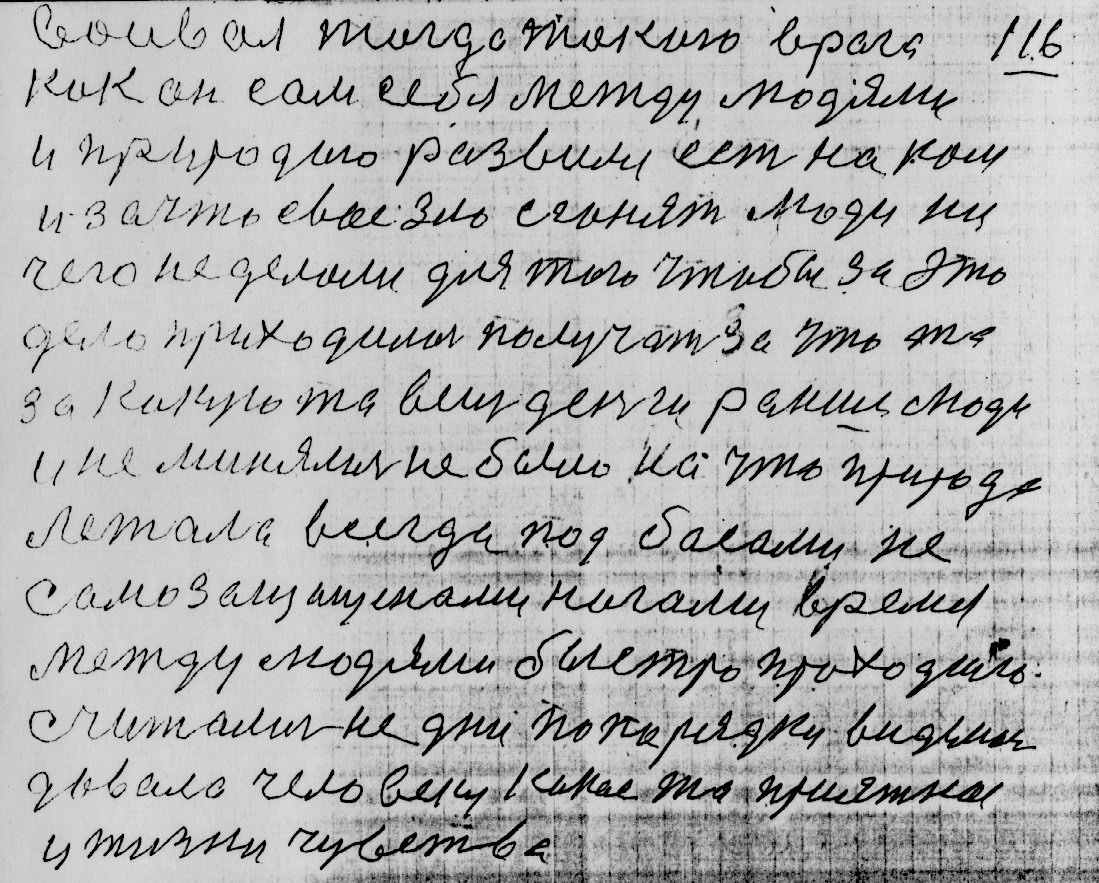 боивал тогда такого врага 116
как он сам себя между людями
и природою развили ест на ком
и за что свое зло сгонят люди ни
чего не делали для того чтобы за это
дело приходилися получат за что та
за какуюта вещ денги ранши люди
и не минялися не было на что природа
летала всегда под басами не
самозащищенами ногами время
между людями быстро проходило.
считалися не дни попарядки
давала человеку какое та приятнае
и жизни чувства